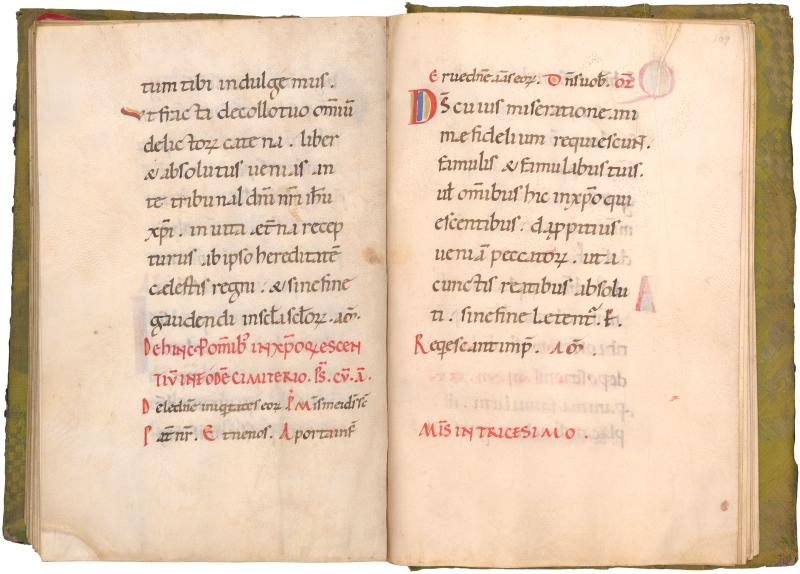 tum tibi indulgemus.
Ut fracta de collo tuo om̄iū
delictoꝝ catena. liber
& absolutus uenias an
te tribunal dn̄i nr̄i ih̄u
xp̄i. in uita et̄na recep
turus ab ipso hereditatē
cęlestis regni. & sine fine
gaudendi in scl̄a scl̄oꝝ. am̄.
Dehinc P om̄ibꝰ in xp̄o q̄escen
tiū in eodē cimiterio. Ps̄.
Dele dn̄e iniq̄tates eoꝝ
Pat̄ nr̄. Et ne nos. A porta inf̄
109
Erue dn̄e aīas eoꝝ. Dn̄s uob̄. Or̄
Ds̄ cuius miseratione ani
mę fidelium requiescunt.
famulis & famulabus tuis.
ut̄ om̄ibus hic in xp̄o qui
escentibus. da ꝓpitius
ueniā peccatoꝝ. ut a
cunctis reatibus absolu
ti. sine fine letent̄. P.
Reqescant in p̄. Am̄.
Mīs in tricesimo.